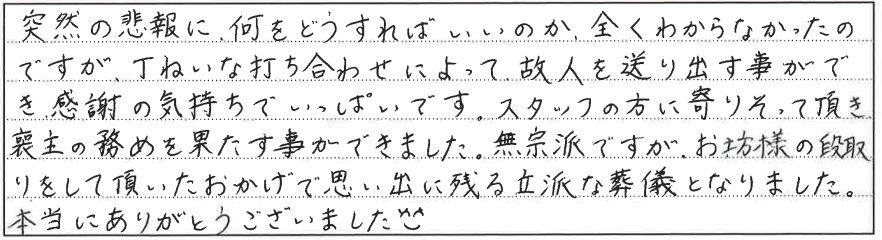 突然の悲報に、何をどうすればいいのか、全くわからなかったの
ですが、丁ねいな打ち合わせによって、故人を送り出す事がで
き、感謝の気持ちでいっぱいです。スタッフの方に寄りそって頂き
喪主の務めを果たす事ができました。無宗派ですが、お坊様の段取
りをして頂いたおかげで思い出に残る立派な葬儀となりました。
本当にありがとうございました^^